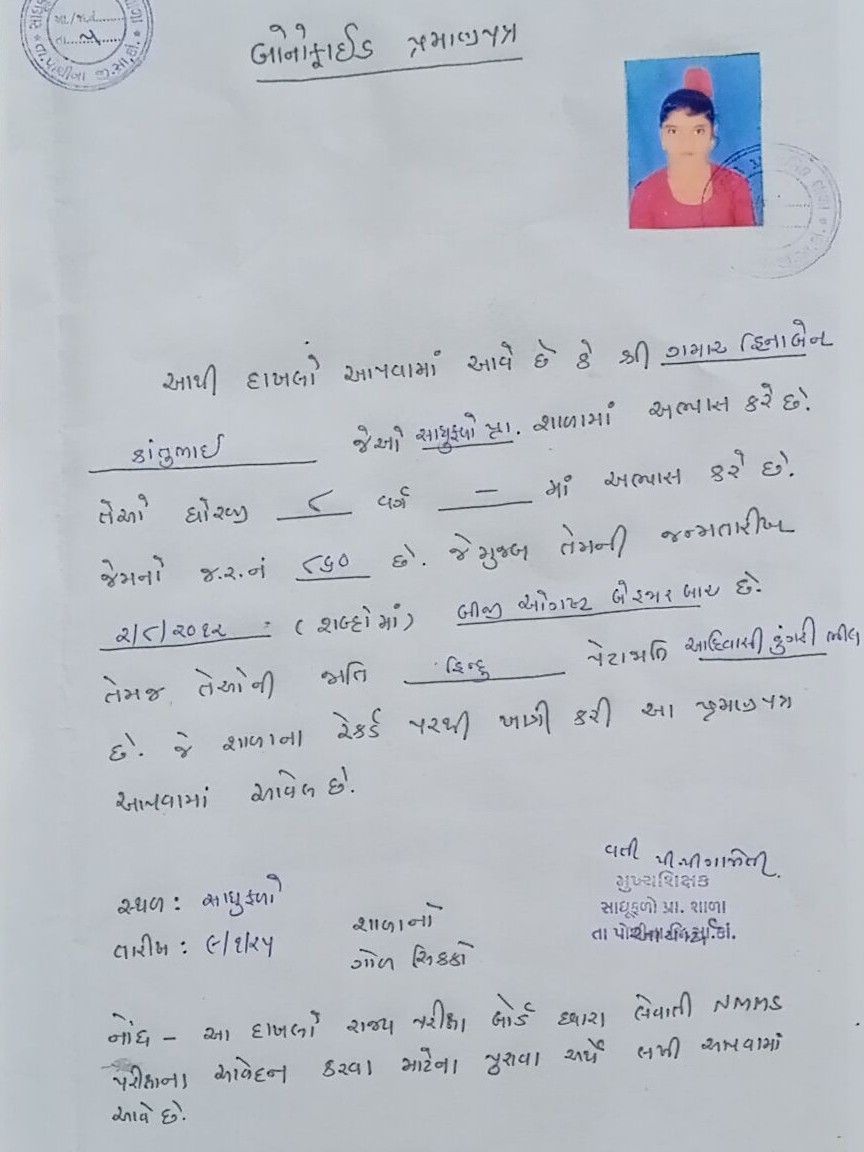 બોનોફાઈડ પ્રમાણપત્ર
આથી દાખલો આપવામાં આવે છે કે શ્રી ગમાર હિનાબેન
કાંતુભાઈ જેઓ સાધુફળો પ્રા. શાળામાં અભ્યાસ કરે છે.
તેઓ ધોરણ ૮ વર્ગ — માં અભ્યાસ કરે છે.
જેમનો જ.ર.નં ૮૬૦ છે. જે મુજબ તેમની જન્મતારીખ
૨/૮/૨૦૧૨ : (શબ્દોમાં) બીજી ઓગષ્ટ બે હજાર બાર છે.
તેમજ તેઓની જાતિ હિન્દુ પેટાજાતિ આદિવાસી ડુંગરી ભીલ
છે. જે શાળાના રેકર્ડ પરથી ખાત્રી કરી આ પ્રમાણપત્ર
આપવામાં આવેલ છે.
વતી
મુખ્યશિક્ષક
સ્થળ : સાધુફળો
સાધૂફળો પ્રા. શાળા
શાળાનો
તારીખ : ૯/૧/૨૫
ગોળ સિક્કો
નોંધ - આ દાખલો રાજ્ય પરીક્ષા બોર્ડ દ્વારા લેવાતી NMMS
પરીક્ષાના આવેદન કરવા માટેના પુરાવા અર્થે લખી આપવામાં
આવે છે.